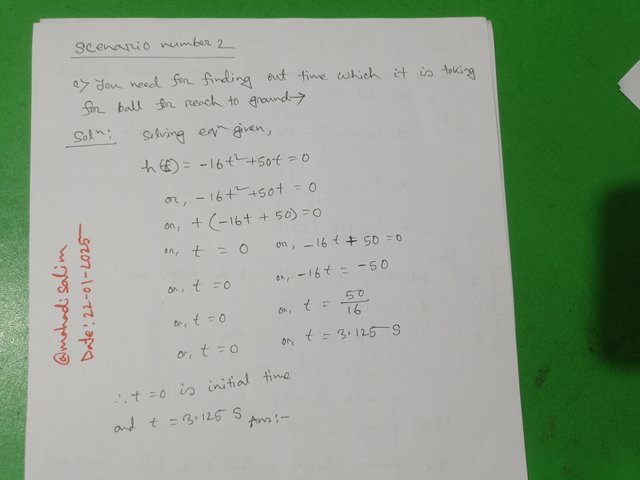 Scenario number 2
a) You need for finding out time which it is taking
for ball for reach to ground→
Solⁿ: Silving eqⁿ given,
h(t) = -16t²+50t = 0
or, -16t²+50t = 0
or, t(-16t + 50) = 0
or, t = 0 or, -16t + 50 = 0
or, t = 0 or, -16t = -50
or, t = 0 or, t = 50/16
or, t = 0 or, t = 3.125 S
∴ t = 0 is initial time
and t = 3.125 S Ans:-
@mahadisalim
Date: 22-01-2025